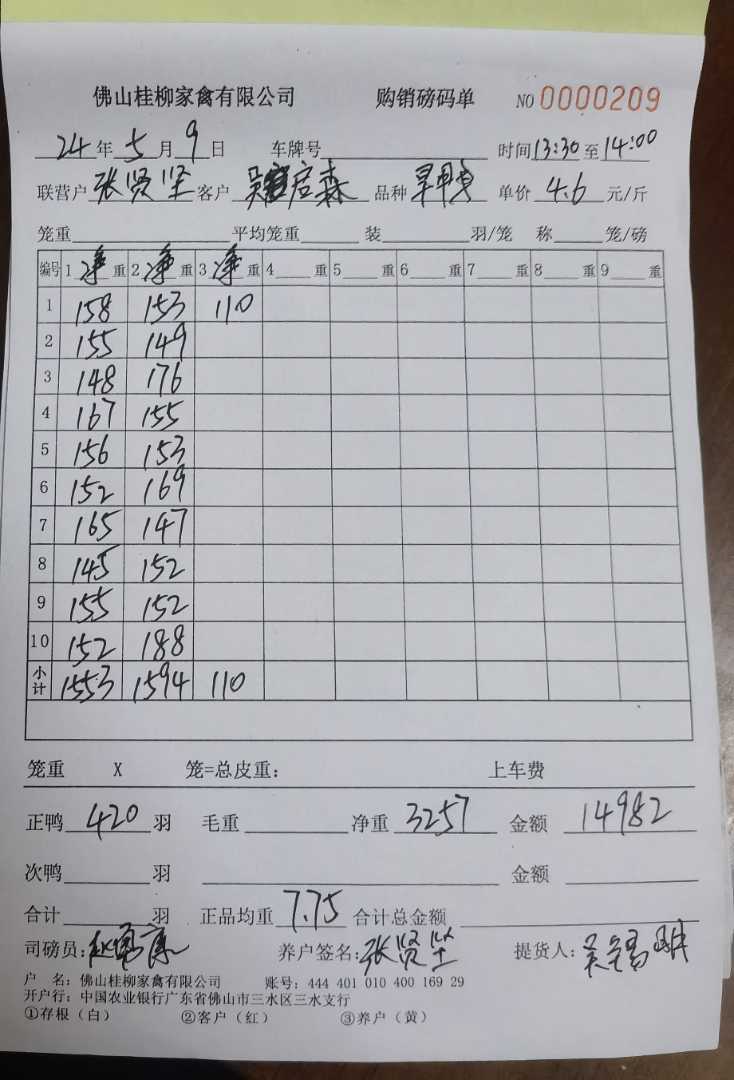 佛山桂柳家禽有限公司 购销磅码单 NO 0000209
24年5月9日 车牌号 时间13:30至14:00
联营户张贤坚客户 启森 品种 单价4.6元/斤
笼重 平均笼重 装 羽/笼 称 笼/磅
编号 1净重 2净重 3净重 4 重 5 重 6 重 7 重 8 重 9 重
1 158 153 110
2 155 149
3 148 176
4 167 155
5 156 153
6 152 169
7 165 147
8 145 152
9 155 152
10 152 188
小计 1553 1594 110
笼重 X 笼=总皮重: 上车费
正鸭420羽 毛重 净重3257 金额14982
次鸭 羽 金额
合计 羽 正品均重7.75 合计总金额
司磅员: 养户签名:张贤坚 提货人:吴
户 名: 佛山桂柳家禽有限公司 账号: 444 401 010 400 169 29
开户行: 中国农业银行广东省佛山市三水区三水支行
①存根(白) ②客户(红) ③养户(黄)